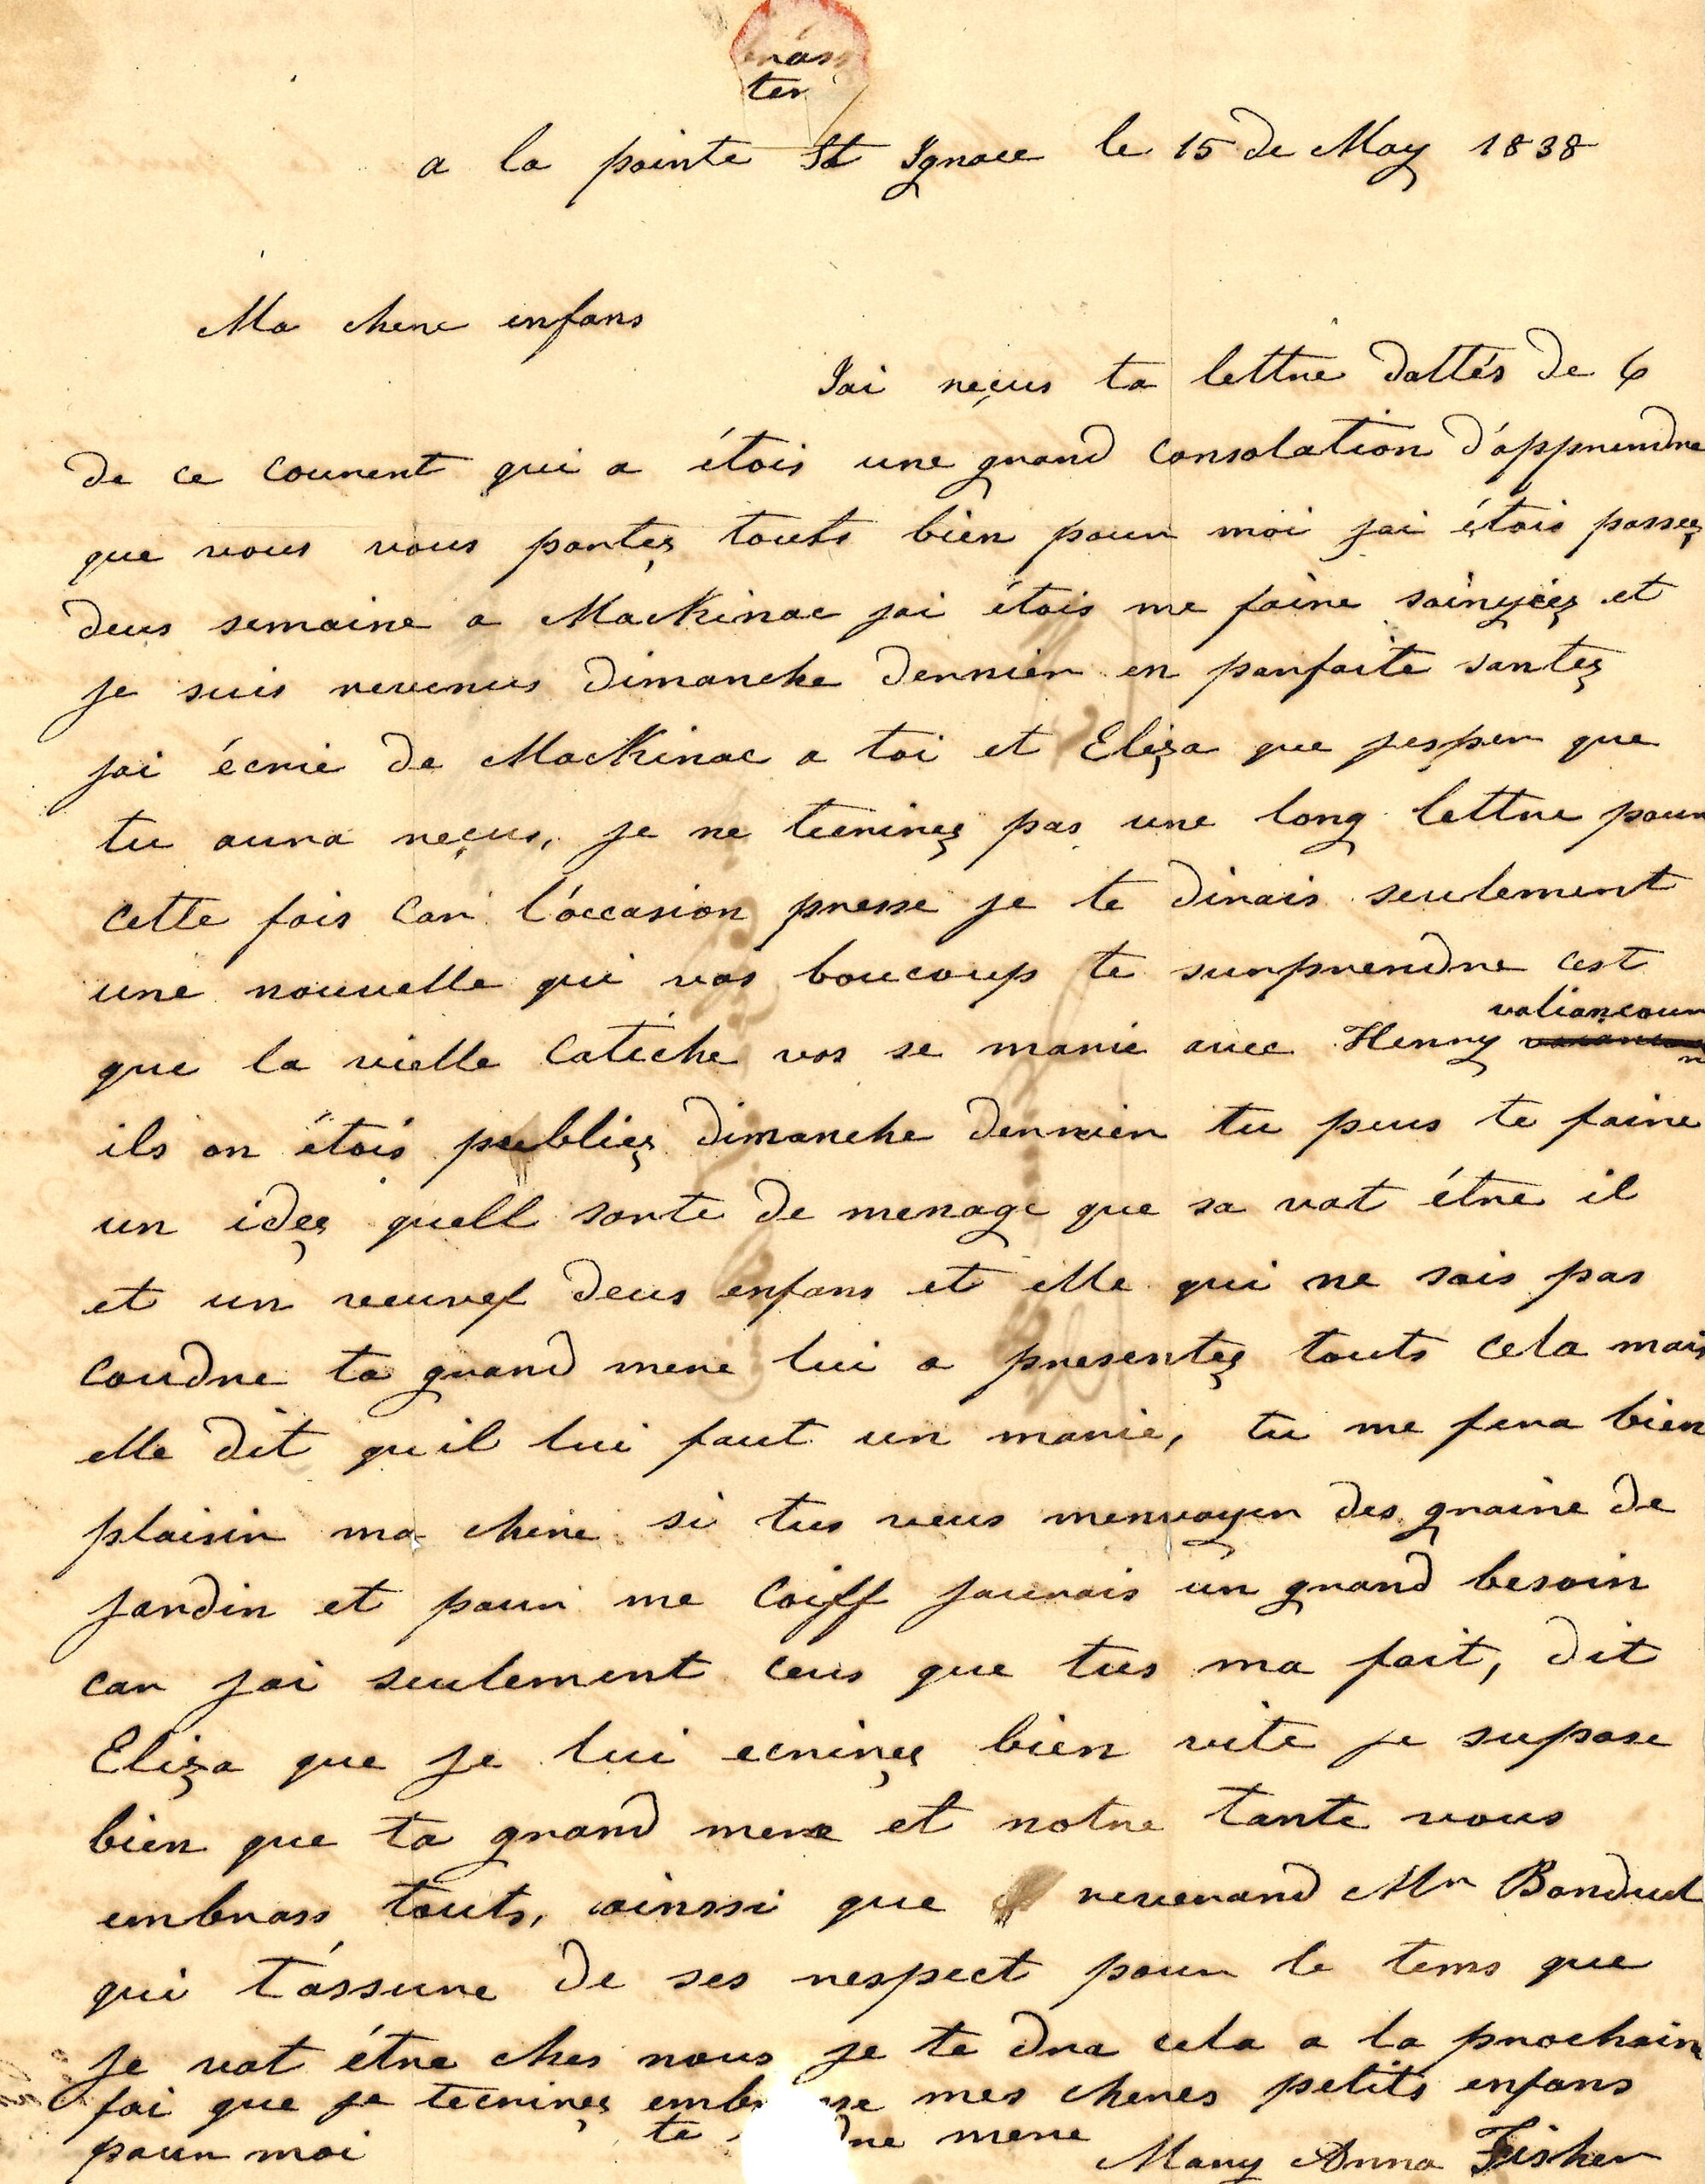 ten
a la pointe St Ignace le 15 de May 1838
Ma chere enfans
Jai reçus ta lettre dattés de 6
de ce courent qui a étois une grand consolation d'apprendre
que vous vous portez touts bien pour moi jai étois passez
deus semaine a Mackinac jai étois me faire sainyiez et
je suis revenus dimanche dernier en parfaite santez
jai écrie de Mackinac a toi et Eliza que jesper que
tu aura reçus, je ne tecrirez pas une long lettre pour
cette fois car l'occasion presse je te dirais seulement
une nouvelle qui vas boucoup te surprendre cest
valiancour
que la vielle Catiche vas se marie avec Henry
ils on étois publiez dimanche dernier tu peus te faire
un idez quell sorte de menage que sa vat étre il
et un veuvef deus enfans et elle qui ne sais pas
coudre ta grand mere lui a presentez touts cela mais
elle dit quil lui faut un marie, tu me fera bien
plaisir ma chere si tus veus menvoyer des graine de
jardin et pour me coiff jaurais un grand besoin
car jai seulement ceus que tus ma fait, dit
Eliza que je lui ecrirez bien vite je supose
bien que ta grand mere et notre tante vous
embrass touts, ainssi que reverand Mr Bonduel
qui t'assure de ses respect pour le tems que
je vat étre ches nous je te dra cela a la prochain
foi que je tecrirez mes cheres petits enfans
pour moi ta mere
Mary Anna Fisher